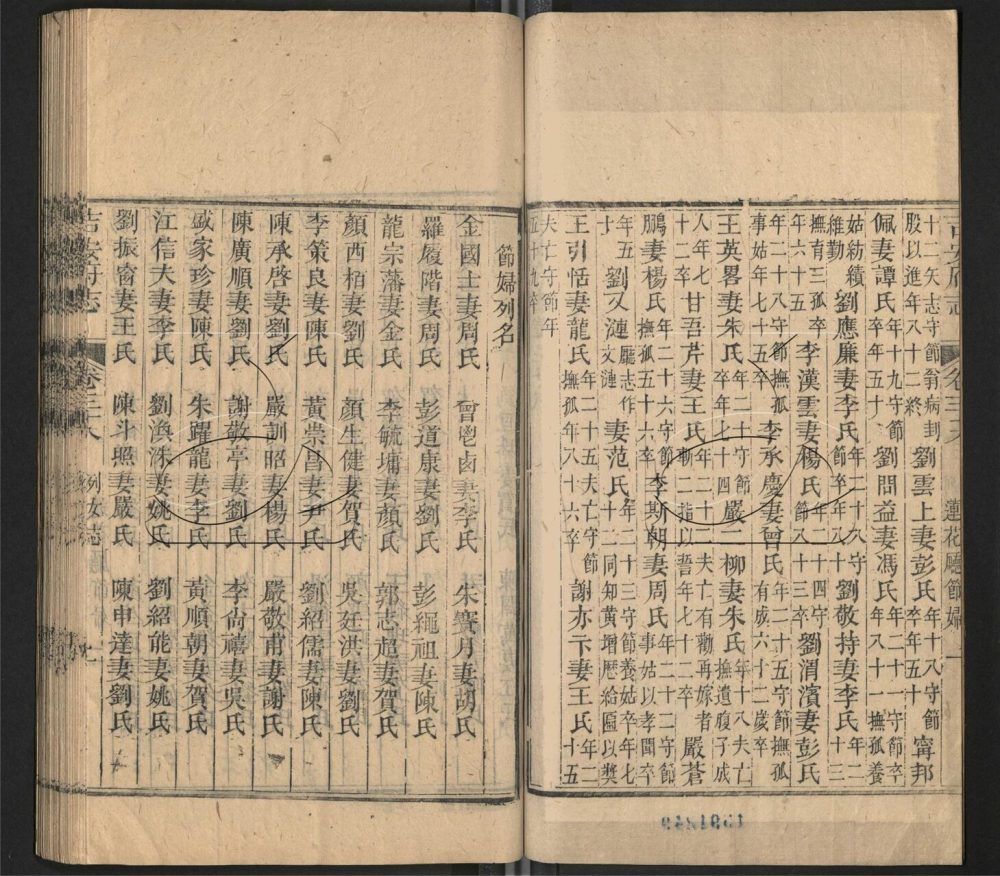 吉安府志 卷三十八 蓮花廳節婦
十二矢志守節翁病刲股以進年八十二終 劉雲上妻彭氏年十八守節卒年五十 甯邦
佩妻譚氏年十九守節卒年五十 劉問益妻馮氏年二十一守節卒年八十一撫孤養
姑紡績維勤 劉應廉妻李氏年二十八守節卒年八十 劉敬持妻李氏年二十三
撫育三孤卒年六十五 李漢雲妻楊氏年二十四守節八十三卒 劉渭濱妻彭氏
年二十八守節撫孤事姑年七十五卒 李承慶妻曾氏年二十五守節撫孤有成六十二歲卒
王英畧妻朱氏年二十守節卒年七十四 嚴二柳妻朱氏年十八夫亡撫遺腹子成
人年七十二卒 甘吾芹妻王氏年二十二夫亡有勸再嫁者斷二指以誓年七十二卒 嚴蒼
鵬妻楊氏年二十六守節撫孤五十六卒 李斯朝妻周氏年二十二守節事姑以孝聞卒
年五十 劉又漣廳志作文漣 妻范氏年二十三守節養姑卒年七十二同知黄增歴給匾以奬
王引恬妻龍氏年二十五夫亡守節撫孤年八十六卒 謝亦卞妻王氏年二十五
夫亡守節年五十九卒
節婦列名
金國士妻周氏 曾鬯卤妻李氏 朱賽月妻胡氏
羅履階妻周氏 彭道康妻劉氏 彭繩祖妻陳氏
龍宗藩妻金氏 李毓墉妻顏氏 郭志超妻賀氏
顏西栢妻劉氏 顏生健妻賀氏 吳廷洪妻劉氏
李策良妻陳氏 黃崇昌妻尹氏 劉紹儒妻陳氏
陳承啓妻劉氏 嚴訓昭妻楊氏 嚴敬甫妻謝氏
陳廣順妻劉氏 謝敬亭妻劉氏 李尚禧妻吳氏
盛家珍妻陳氏 朱躍龍妻李氏 黃順朝妻賀氏
江信夫妻李氏 劉渙洙妻姚氏 劉紹能妻姚氏
劉振甯妻王氏 陳斗照妻嚴氏 陳申達妻劉氏
吉安府志 卷三十八 列女志